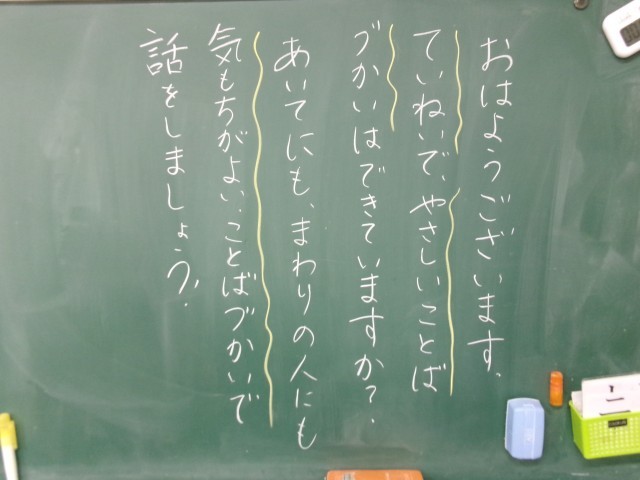 おはようございます。
ていねいで、やさしいことば
づかいはできていますか？
あいてにも、まわりの人にも
気もちがよい、ことばづかいで
話をしましょう。